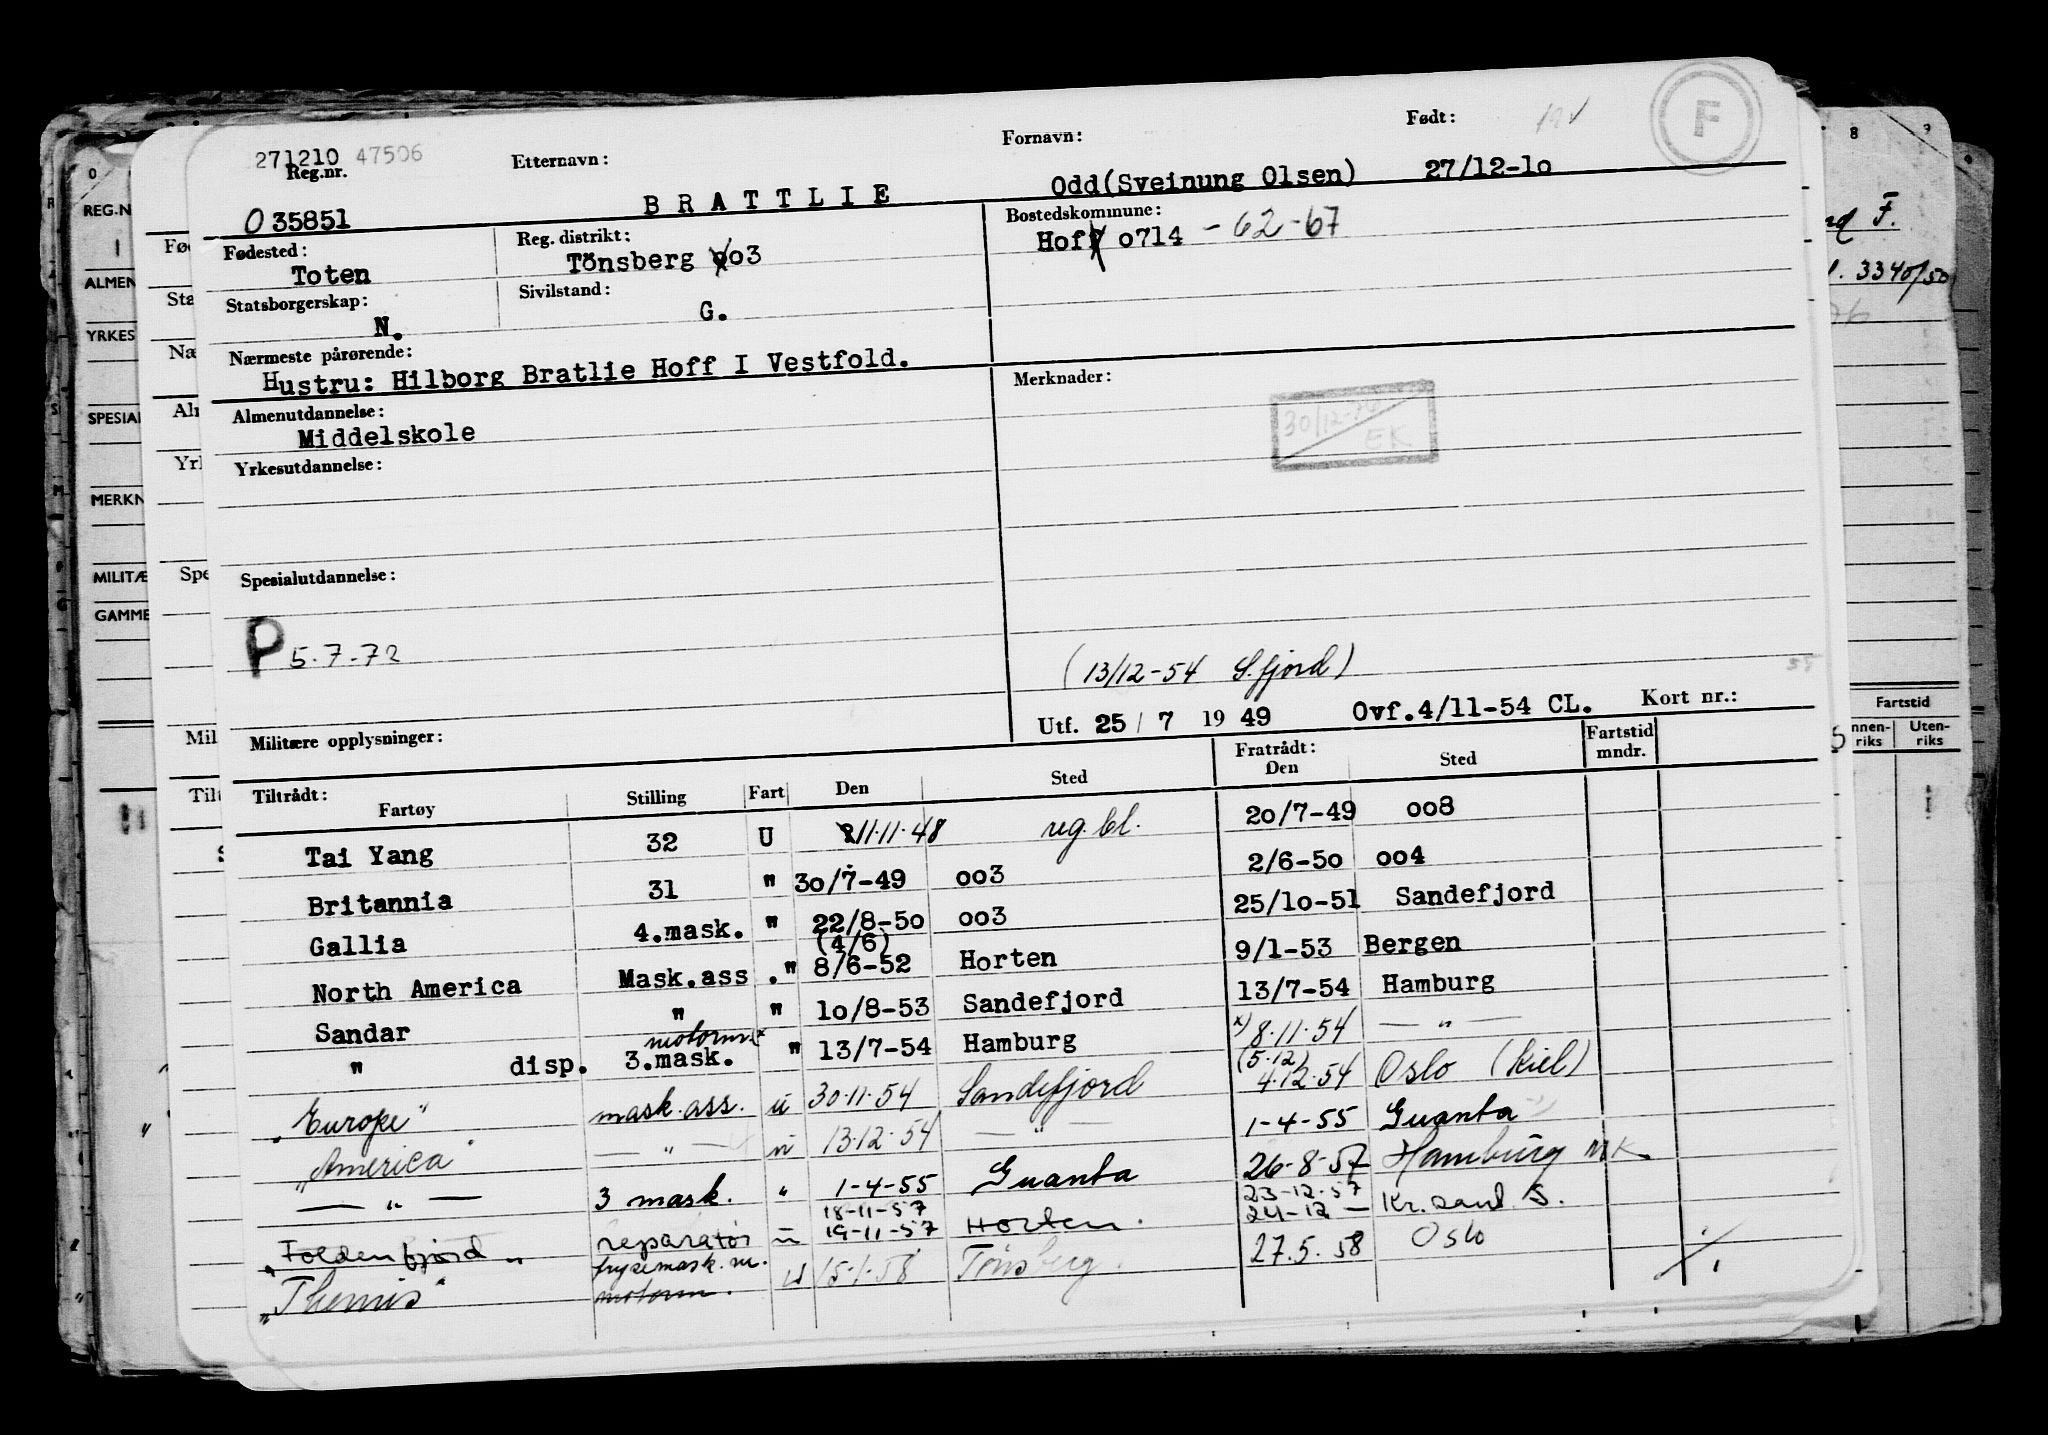 271210 47506
Reg.nr. Etternavn: Fornavn: Født:
035851 BRATTLIE Odd(Sveinung Olsen) 27/12-1o
F
Fødested: Reg. distrikt: Bostedskommune:
Toten Tönsberg oo3 Hoff o714 - 62-67
Statsborgerskap: Sivilstand:
N. G.
Nærmeste pårørende:
Hustru: Hilborg Bratlie Hoff I Vestfold.
Almenutdannelse: Merknader:
Middelskole
EK
Yrkesutdannelse:
Spesialutdannelse:
P 5.7-72
(13/12-54 S.fjord)
Utf. 25 / 7 19 49 Ovf.4/11-54 CL. Kort nr.:
Militære opplysninger:
Tiltrådt: Fratrådt: Fartstid
Fartøy Stilling Fart Den Sted Den Sted mndr.
Tai Yang 32 U 11.11.48 reg. bl. 20/7-49 oo8
Britannia 31 " 3o/7-49 oo3 2/6-5o oo4
Gallia 4.mask. " 22/8-5o oo3 25/1o-51 Sandefjord
(4/6)
North America Mask.ass ." 8/6-52 Horten 9/1-53 Bergen
Sandar " " 1o/8-53 Sandefjord 13/7-54 Hamburg
motorm x
" disp. 3.mask. " 13/7-54 Hamburg x) 8.11.54 — " —
(5.12)
"Europe" mask.ass. u 30.11.54 Sandefjord 4.12.54 Oslo (Kiel)
"America" — " — u 13.12.54 — " — 1-4-55 Guanta
— " — 3 mask. " 1-4-55 Guanta 26-8-57 Hamburg MK
18-11-57 23-12-57
"Foldenfjord" reparatør u 19-11-57 Horten. 24-12 — Kr.sand S.
"Themis" frysemask.m. u 15.1.58 Tönsberg. 27.5.58 Oslo
motorm.
REG.N
ALMEN
YRKES
SPESIAL
MERKN
MILITÆ
GAMME
Fartstid
nnen-riks Uten-riks
3340/50